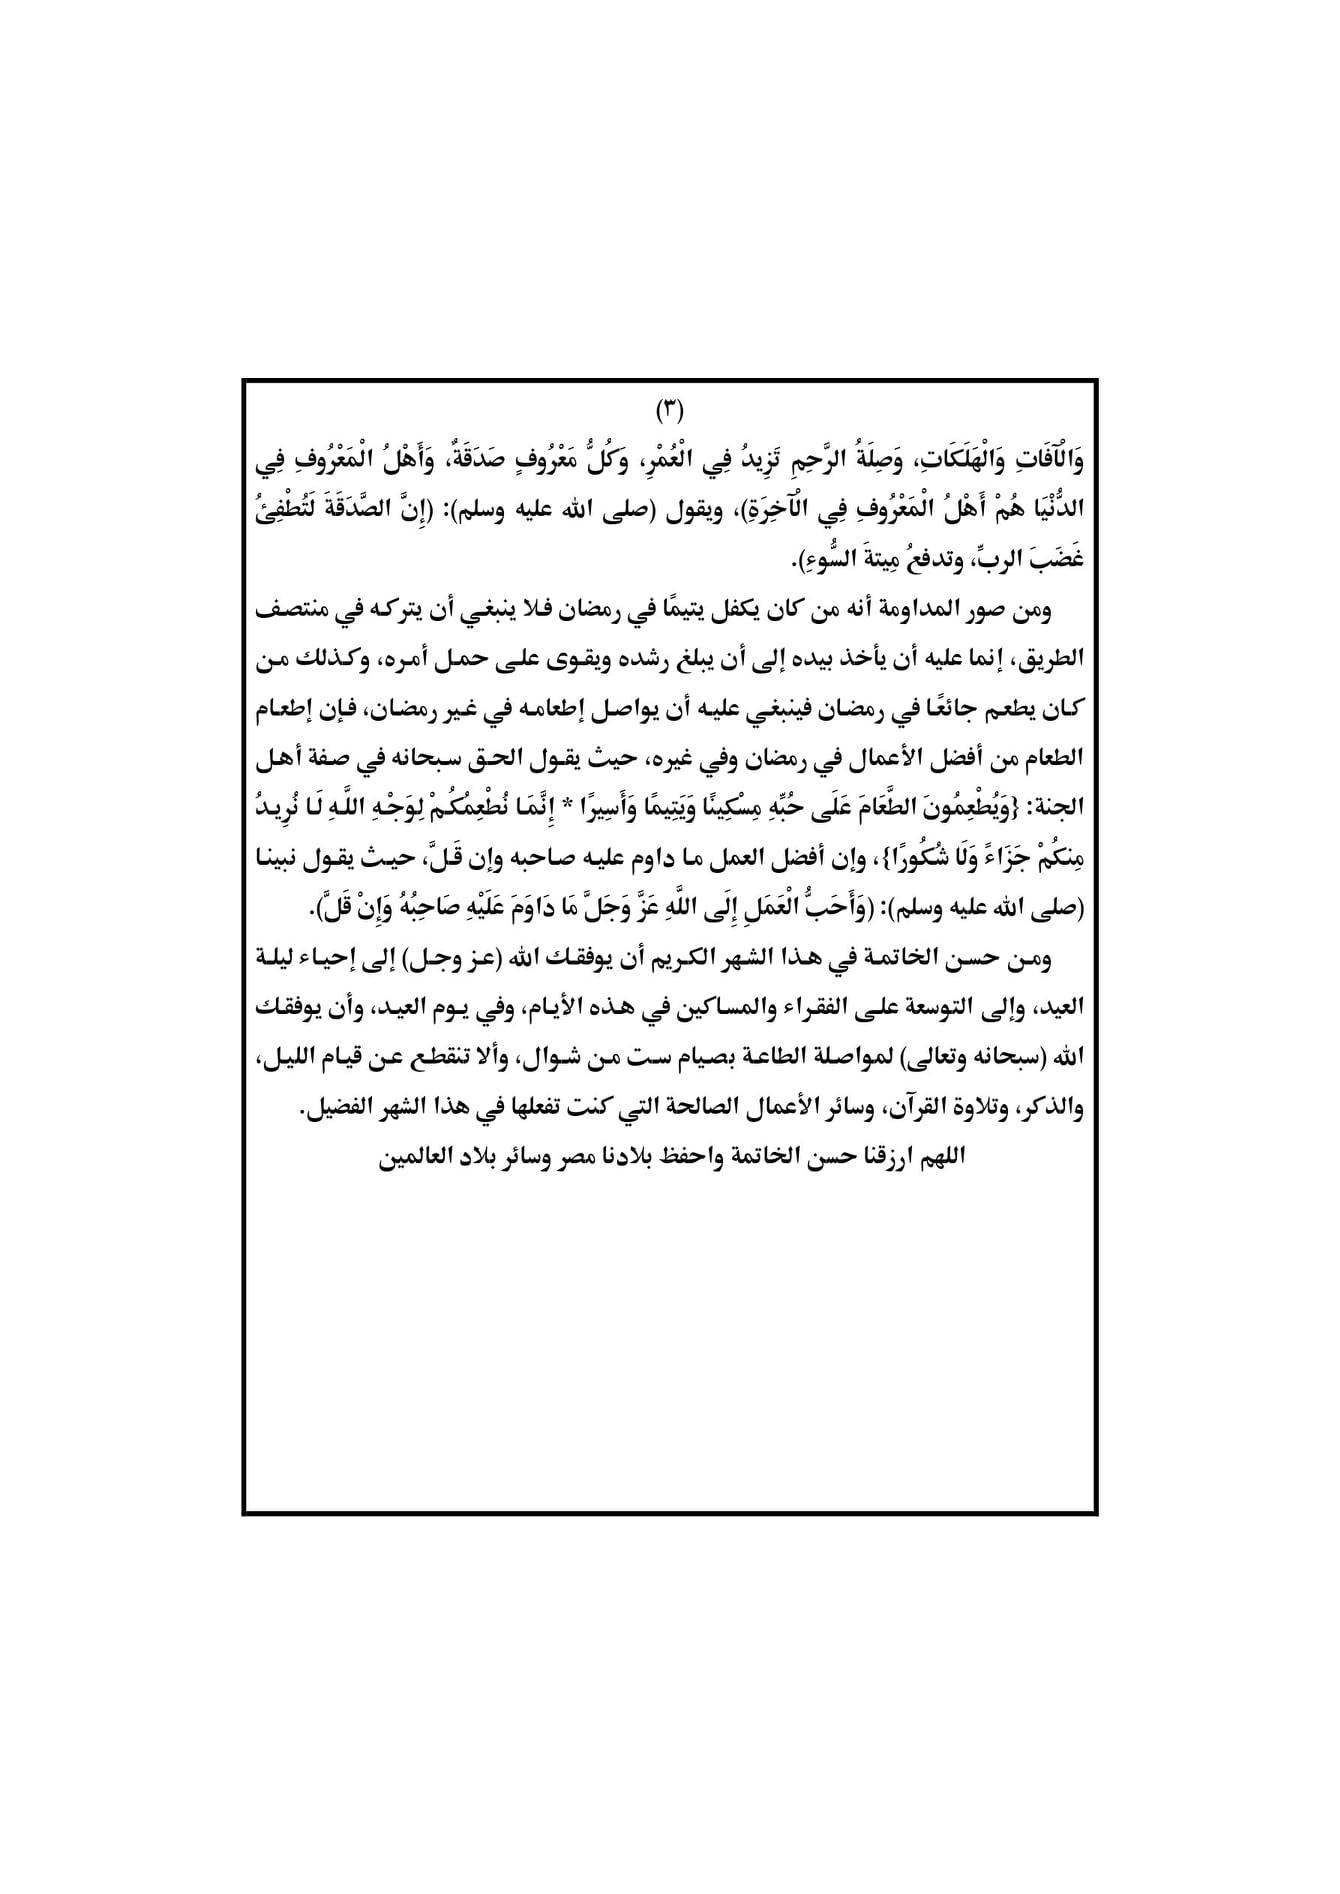 (٣)
وَالْآفَاتِ وَالْهَلَكَاتِ، وَصِلَةُ الرَّحِمِ تَزِيدُ فِي الْعُمْرِ، وَكُلُّ مَعْرُوفٍ صَدَقَةٌ، وَأَهْلُ الْمَعْرُوفِ فِي
الدُّنْيَا هُمْ أَهْلُ الْمَعْرُوفِ فِي الْآخِرَةِ)، ويقول (صلى الله عليه وسلم): (إِنَّ الصَّدَقَةَ لَتُطْفِئُ
غَضَبَ الربِّ، وتدفعُ مِيتةَ السُّوءِ).
ومن صور المداومة أنه من كان يكفل يتيمًا في رمضان فلا ينبغي أن يتركه في منتصف
الطريق، إنما عليه أن يأخذ بيده إلى أن يبلغ رشده ويقوى على حمل أمره، وكذلك من
كان يطعم جائعًا في رمضان فينبغي عليه أن يواصل إطعامه في غير رمضان، فإن إطعام
الطعام من أفضل الأعمال في رمضان وفي غيره، حيث يقول الحق سبحانه في صفة أهل
الجنة: {وَيُطْعِمُونَ الطَّعَامَ عَلَى حُبِّهِ مِسْكِينًا وَيَتِيمًا وَأَسِيرًا * إِنَّمَا نُطْعِمُكُمْ لِوَجْهِ اللَّهِ لَا نُرِيدُ
مِنكُمْ جَزَاءً وَلَا شُكُورًا}، وإن أفضل العمل ما داوم عليه صاحبه وإن قَلَّ، حيث يقول نبينا
(صلى الله عليه وسلم): (وَأَحَبُّ الْعَمَلِ إِلَى اللَّهِ عَزَّ وَجَلَّ مَا دَاوَمَ عَلَيْهِ صَاحِبُهُ وَإِنْ قَلَّ).
ومن حسن الخاتمة في هذا الشهر الكريم أن يوفقك الله (عز وجل) إلى إحياء ليلة
العيد، وإلى التوسعة على الفقراء والمساكين في هذه الأيام، وفي يوم العيد، وأن يوفقك
الله (سبحانه وتعالى) لمواصلة الطاعة بصيام ست من شوال، وألا تنقطع عن قيام الليل،
والذكر، وتلاوة القرآن، وسائر الأعمال الصالحة التي كنت تفعلها في هذا الشهر الفضيل.
اللهم ارزقنا حسن الخاتمة واحفظ بلادنا مصر وسائر بلاد العالمين